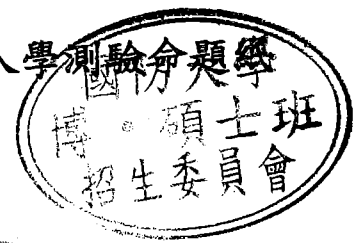 入學測驗命題紙
國防大學
博、碩士班
招生委員會